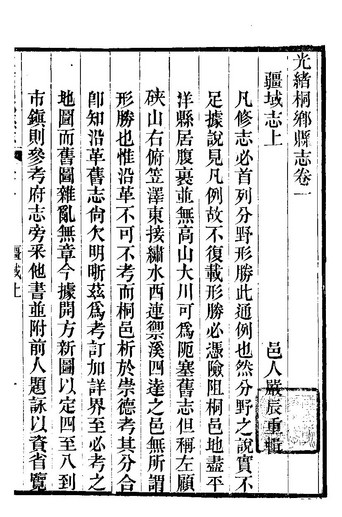 光緒桐鄉縣志卷一
疆域志上
邑人嚴辰重輯
凡修志必首列分野形勝此通例也然分野之說實不
足據說見凡例故不復載形勝必憑險阻桐邑地盡平
洋縣居腹裏並無高山大川可爲阨塞舊志但稱左顧
硤山右俯笠澤東接繡水西連禦溪四達之邑無所謂
形勝也惟沿革不可不考而桐邑析於崇德考其分合
卽知沿革舊志尙欠明晰茲爲考訂加詳界至必考之
地圖而舊圖雜亂無章今據開方新圖以定四至八到
市鎭則參考府志旁釆他書並附前人題詠以資省覽
疆域上